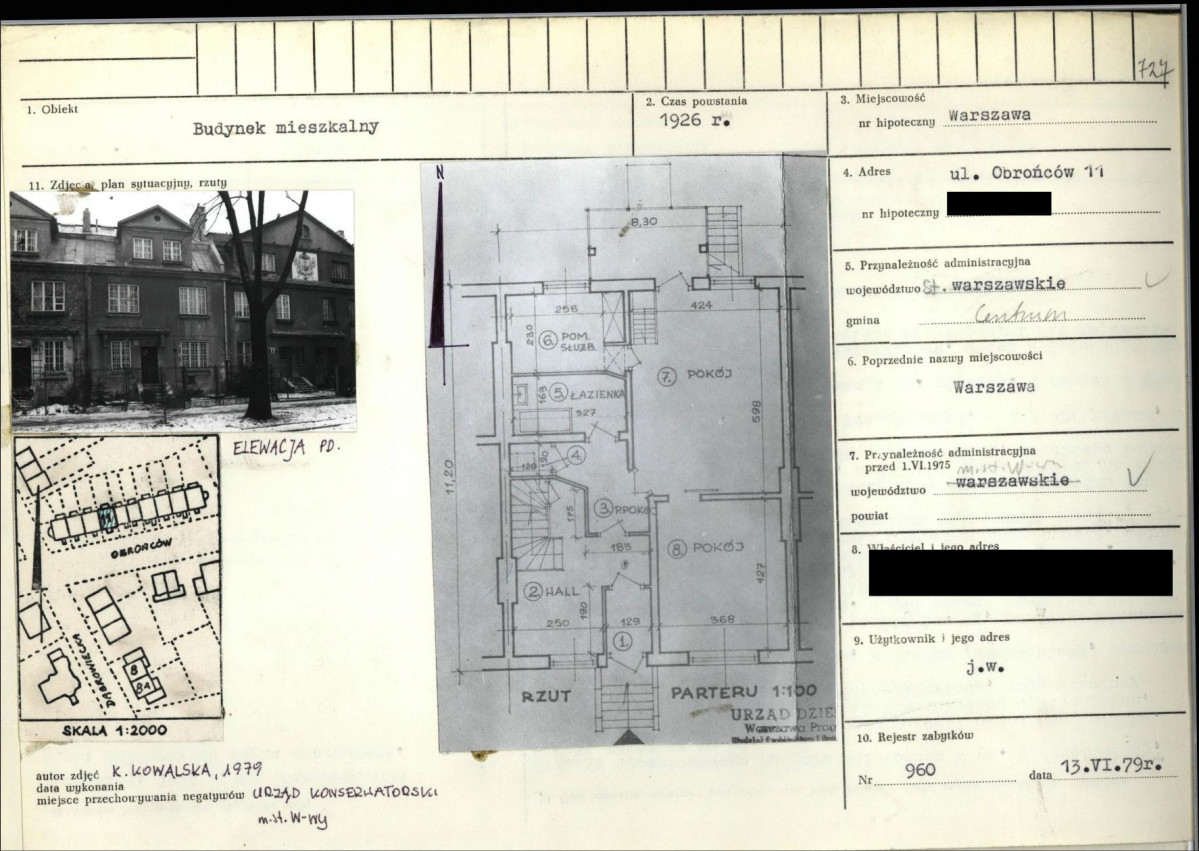 727
1. Obiekt
Budynek mieszkalny
2. Czas powstania
1926 r.
3. Miejscowość
nr hipoteczny Warszawa
4. Adres ul. Obrońców 11
nr hipoteczny
5. Przynależność administracyjna
województwo St. warszawskie
gmina Centrum
6. Poprzednie nazwy miejscowości
Warszawa
7. Przynależność administracyjna
przed 1.VI.1975 m.st. W-wa
województwo warszawskie
powiat
8. Właściciel i jego adres
9. Użytkownik i jego adres
j.w.
10. Rejestr zabytków
Nr 960 data 13.VI.79r.
11. Zdjęcia, plan sytuacyjny, rzuty
ELEWACJA PD.
OBROŃCÓW
DĄBROWIECKA
8
8A
SKALA 1:2000
N
8,30
258
424
230
6. POM.
SŁUŻB.
7. POKÓJ
163
5. ŁAZIENKA
327
598
11,20
120
4.
175
3. P.POKÓJ
183
8. POKÓJ
427
2. HALL
190
250
129
368
1.
RZUT PARTERU 1:100
URZĄD DZIE
autor zdjęć K. KOWALSKA, 1979
data wykonania
miejsce przechowywania negatywów URZĄD KONSERWATORSKI
m.st. W-wy